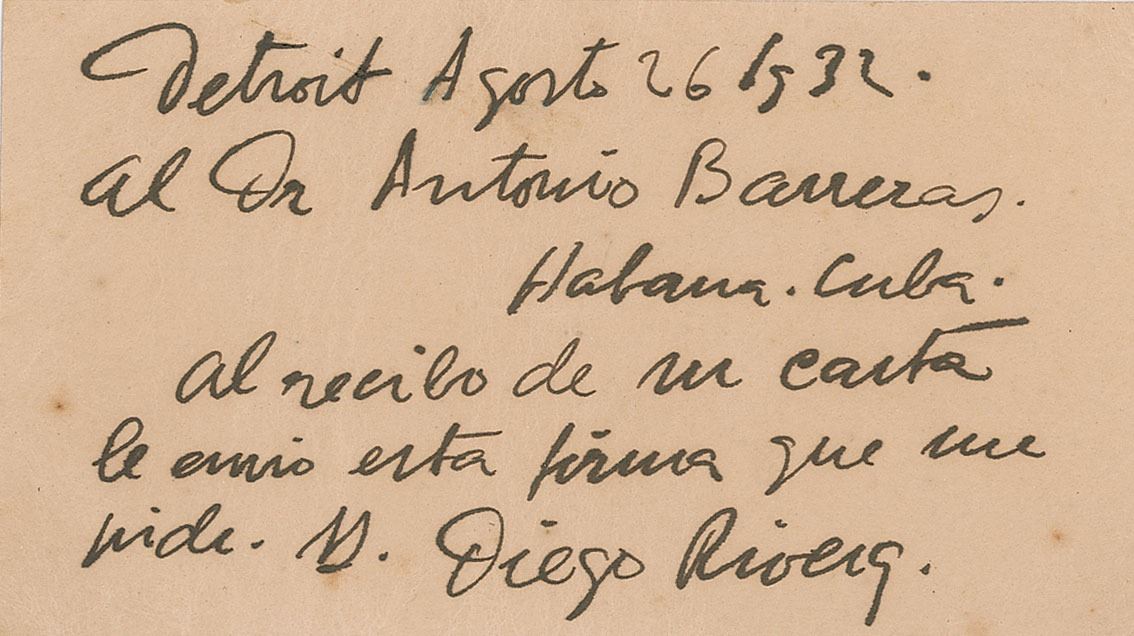 Detroit Agosto 26 1932.
al Dr Antonio Barreras.
Habana. Cuba.
al recibo de su carta
le envio esta firma que me
pide. V. Diego Rivera.